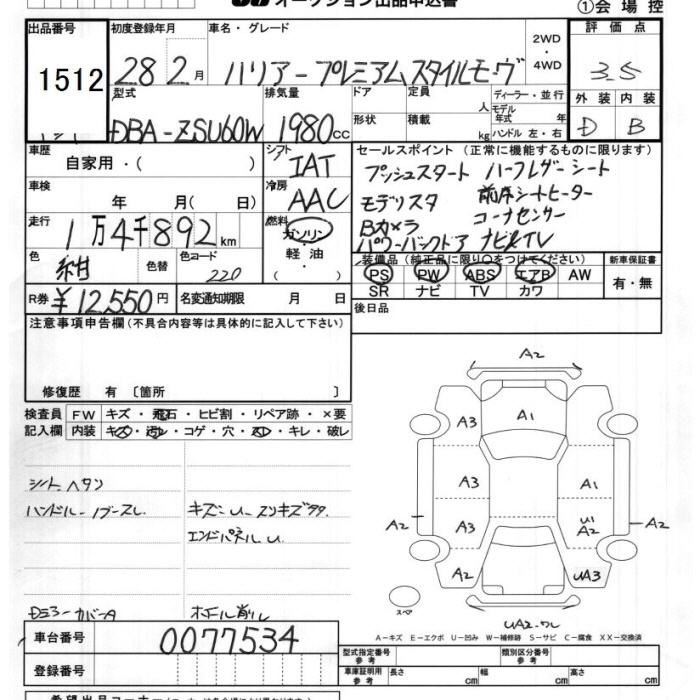 オークション出品申込書
①会場控
出品番号 初度登録年月 車名・グレード 2WD・4WD 評価点
1512 28 2月 ハリアー プレミアムスタイルモーヴ 3.5
型式 排気量 ドア 定員 人 ディーラー・並行 外装 内装
DBA-ZSU60W 1980cc 形状 積載 kg モデル年式 年 ハンドル左・右 D B
車歴 自家用・( ) シフト IAT セールスポイント (正常に機能するものに限ります)
プッシュスタート ハーフレザーシート
車検 年 月( 日) 冷房 AAC モデリスタ 前席シートヒーター
Bカメラ コーナーセンサー
走行 1万4千892km 燃料 ガソリン・軽油・( ) パワーバックドア ナビ&TV
色 紺 色替 色コード 220 装備品(純正品に限り○をつけてください) 新車保証書
PS PW ABS エアB AW 有・無
SR ナビ TV カワ
R券 ¥12,550円 名変通知期限 月 日 後日品
注意事項申告欄(不具合内容等は具体的に記入して下さい)
修復歴 有〔箇所 〕
検査員 FW キズ・飛石・ヒビ割・リペア跡・×要
記入欄 内装 キズ・汚レ・コゲ・穴・スレ・キレ・破レ
シートヘタリ
ハンドル
キズ
エンドパネルU
カバーA
A2
A3 A1
A3 A1
A2 A3 U1 A2 A2
A2 UA3
スペア
A-キズ E-エクボ U-凹み W-補修跡 S-サビ C-腐食 XX-交換済
車台番号 0077534 型式指定番号 参考 類別区分番号 参考
登録番号 車庫証明用 参考 長さ cm 幅 cm 高さ cm